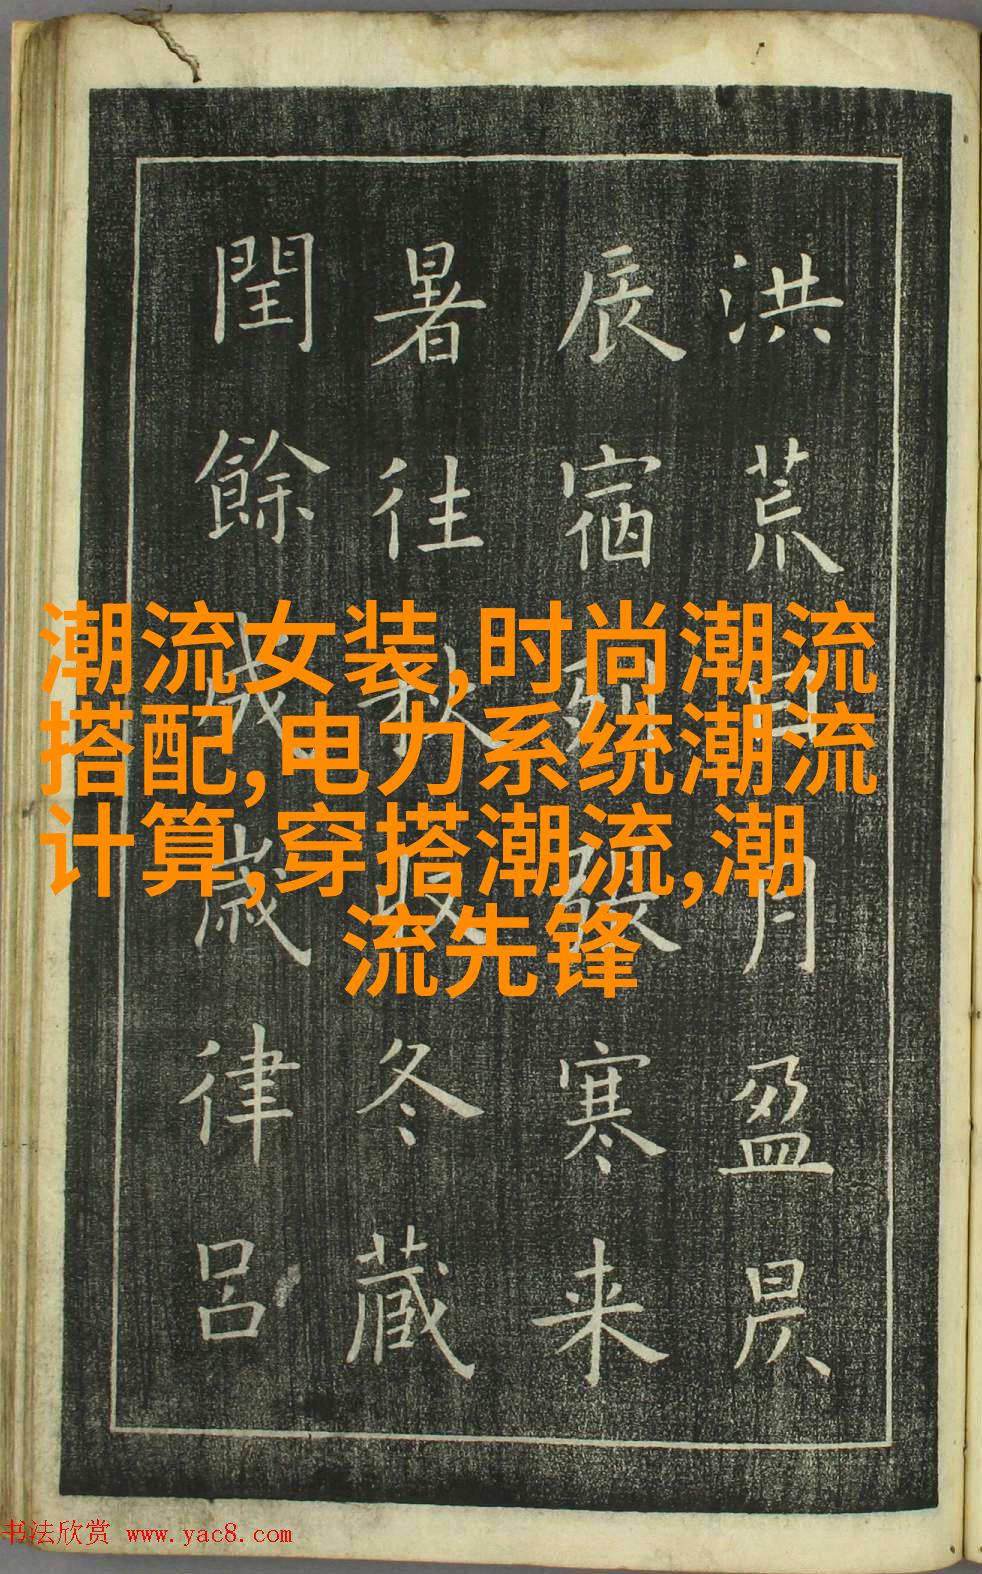 洪荒日月盈昃
辰宿列張寒来
暑往秋收冬藏
閏餘成歲律呂
潮流女装,时尚潮流
搭配,电力系统潮流
计算,穿搭潮流,潮
流先锋
书法欣赏 www.yac8.com